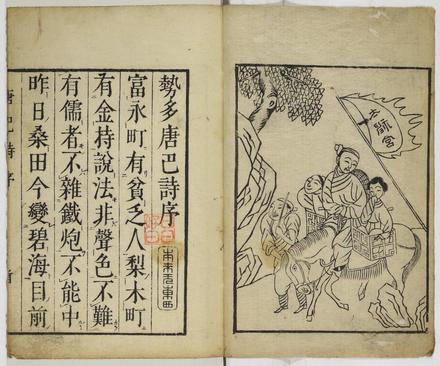 勢多唐巴詩序
本来无東西
富永町有貧乏人梨木町
有金持說法非聲色不難
有儒者不雜鐵炮不能中
昨日桑田今變碧海目前
唐巴詩序